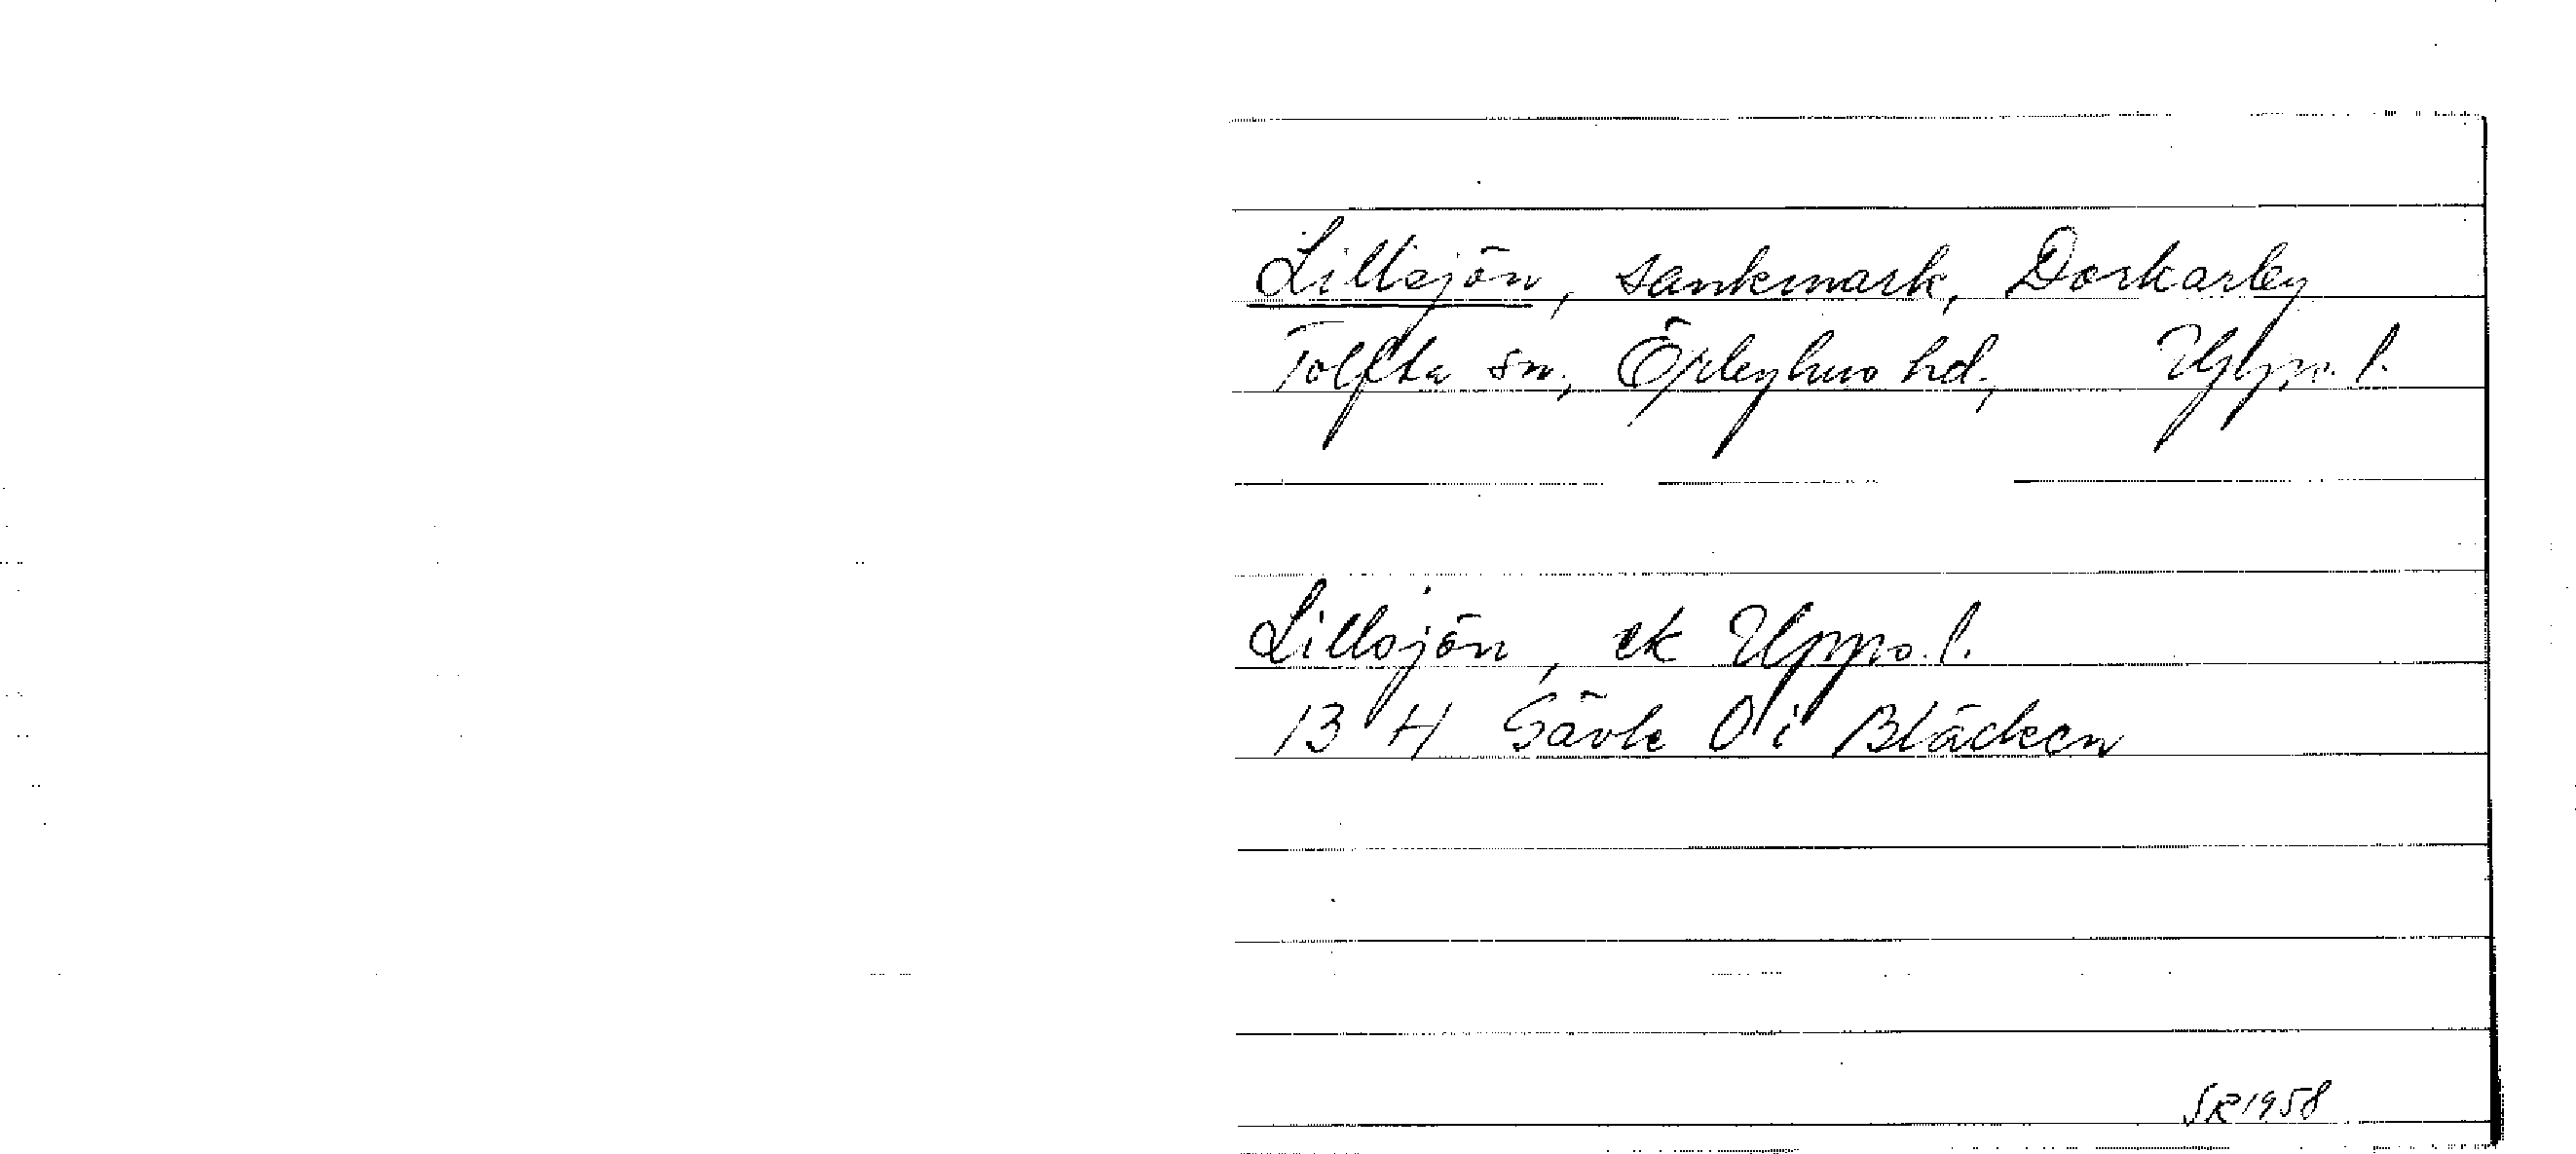 Lillsjön, sankmark, Dorkarby
Tolfta sn, Örbyhus hd, Upps. l.
Lillsjön, ek Upps. l.
13 H Gävle 0 i Bläcken
SR 1958